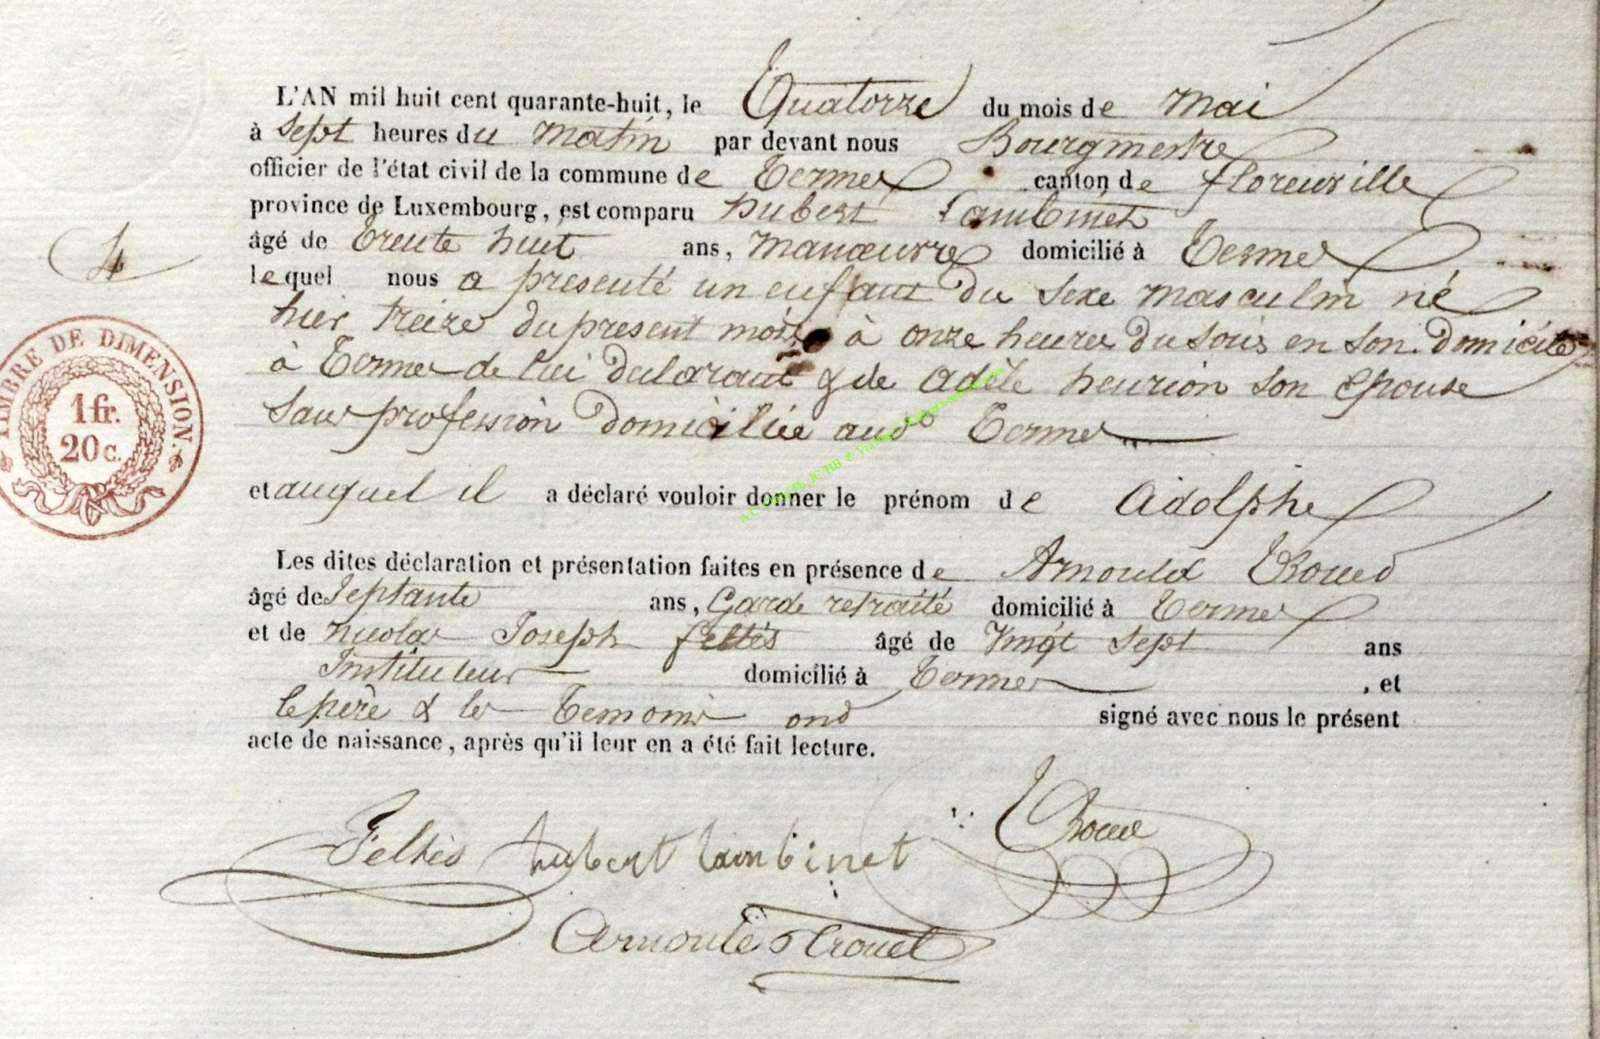 L'AN mil huit cent quarante-huit, le Quatorze du mois de mai
à Sept heures du matin par devant nous Bourgmestre
officier de l'état civil de la commune de Termes canton de florenville
province de Luxembourg, est comparu hubert Lambinet
âgé de trente huit ans, manœuvre domicilié à Termes
lequel nous a présenté un enfant du sexe masculin né
hier treize du present mois à onze heures du soir en son domicile
à Termes de lui déclarant & de adèle henrion son épouse
sans profession domiciliée aud Termes
et auquel il a déclaré vouloir donner le prénom de adolphe
Les dites déclaration et présentation faites en présence de Arnould
âgé de Septante ans, Garde retraité domicilié à Termes
et de nicolas Joseph feltès âgé de Vingt Sept ans
Instituteur domicilié à Termes, et
le père & les Temoins ont signé avec nous le présent
acte de naissance, après qu'il leur en a été fait lecture.
4
TIMBRE DE DIMENSION.
1 fr.
20 c.
Feltès hubert lambinet